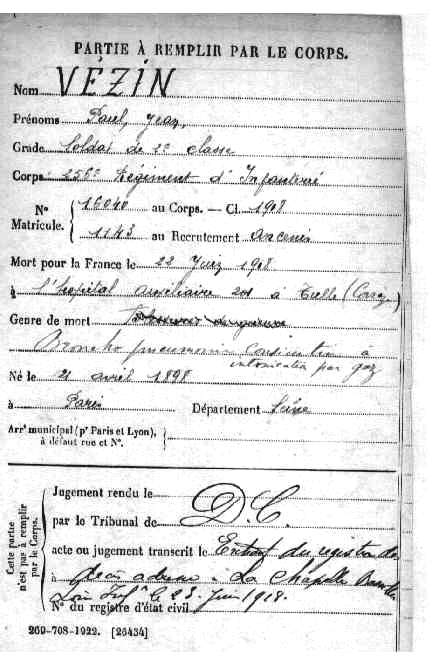 PARTIE À REMPLIR PAR LE CORPS.
Nom VÉZIN
Prénoms Paul, Jean,
Grade Soldat de 2e classe
Corps 256e Régiment d'Infanterie
No Matricule. 16040 au Corps. — Cl. 1918
1143 au Recrutement Ancenis
Mort pour la France le 22 Juin 1918
à l'hôpital auxiliaire à Tulle (Corrèze)
Genre de mort
Broncho pneumonie consécutive à
intoxication par gaz
Né le 21 avril 1898
à Paris Département Seine
Arrt municipal (pr Paris et Lyon),
à défaut rue et No.
Cette partie
n'est pas à remplir
par le Corps.
Jugement rendu le
par le Tribunal de D.C.
acte ou jugement transcrit le Extrait du registre des
à décès La Chapelle
Loire Infre le 23 Juin 1918.
No du registre d'état civil
269-708-1922. [26434]